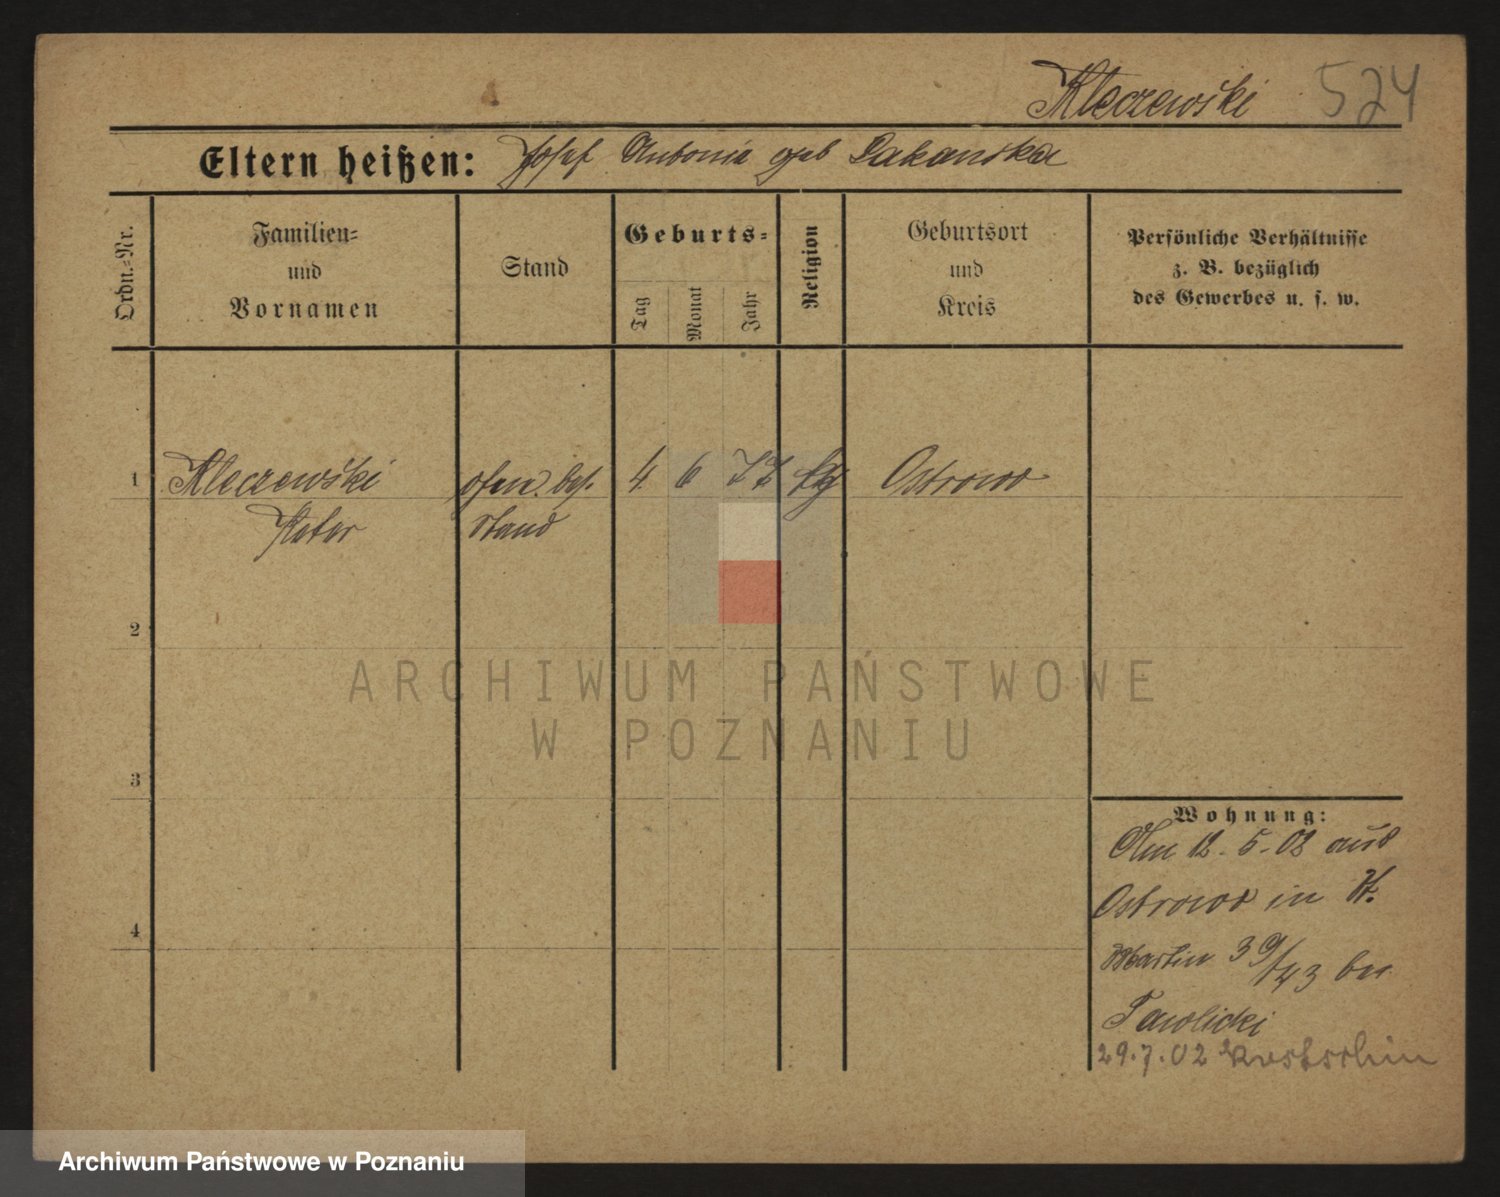 Kleczewski 524
Eltern heißen: Josef Antonie geb Lakanska
Ordn.=Nr.
Familien=
und
Vornamen
Stand
Geburts=
Tag
Monat
Jahr
Religion
Geburtsort
und
Kreis
Persönliche Verhältnisse
z. B. bezüglich
des Gewerbes u. s. w.
1 Kleczewski 4 6 77 Ostrowo
Peter stand
2
3
4
Wohnung:
Am 12. 5. 02 aus
Ostrowo in St.
Martin 39/43 bei
Pawlicki
29.7.02
ARCHIWUM PAŃSTWOWE
W POZNANIU
Archiwum Państwowe w Poznaniu